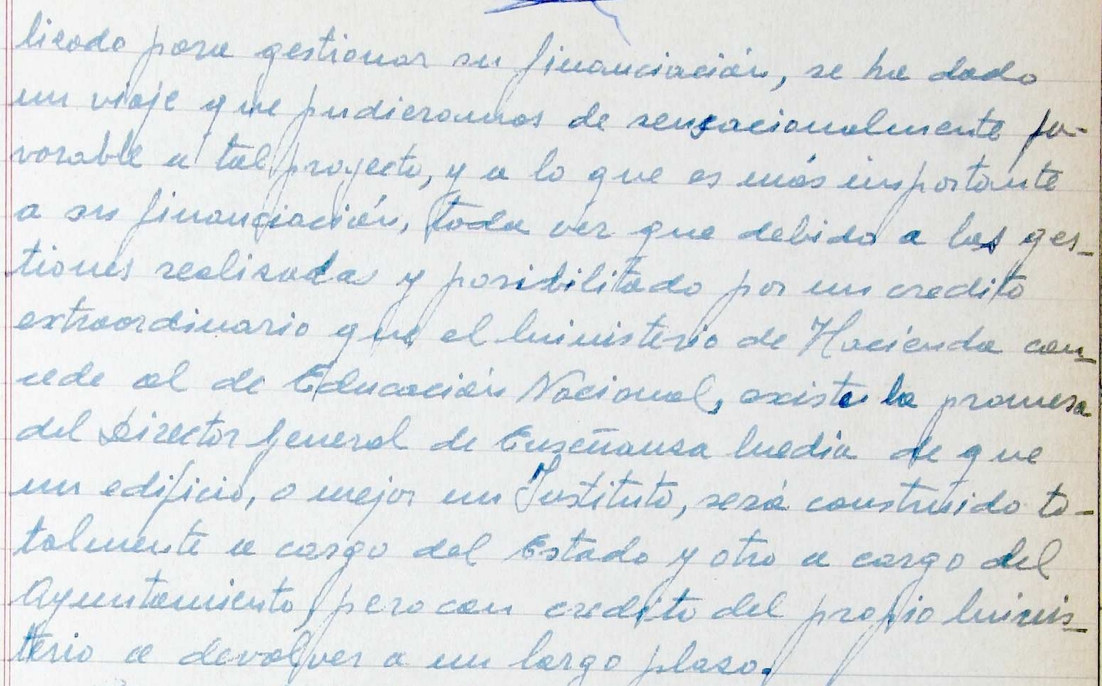 lizado para gestionar su financiación, se ha dado
un viaje que pudieramos de sensacionalmente fa-
vorable a tal proyecto, y a lo que es más importante
a su financiación, toda vez que debido a las ges-
tiones realizada y posibilitado por un credito
extraordinario que el Ministerio de Hacienda con-
cede al de Educación Nacional, existe la promesa
del Director General de Enseñanza Media de que
un edificio, o mejor un Instituto, será construido to-
talmente a cargo del Estado y otro a cargo del
Ayuntamiento, pero con credito del propio Minis-
terio a devolver a un largo plazo.